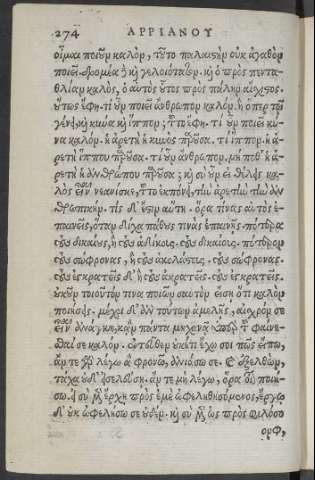 274 ΑΡΡΙΑΝΟΥ
οἶμαι ποιοῦν καλόν, τοῦτο παλαιστὴν οὐκ ἀγαθὸν
ποιεῖ. δρομέα δὲ καὶ γελοιότατον. καὶ ὁ πρὸς πεντα-
θλίαν καλός, ὁ αὐτὸς οὗτος πρὸς πάλην αἴσχιστος.
οὕτως ἔφη. τί οὖν ποιεῖ ἄνθρωπον καλόν. ἢ ὅπερ τῷ
γένει καὶ κύνα καὶ ἵππον; τοῦτο ἔφη. τί οὖν ποιεῖ κύ-
να καλόν. ἡ ἀρετὴ ἡ κυνὸς παροῦσα. τί ἵππον. ἡ ἀ-
ρετὴ ἵππου παροῦσα. τί οὖν ἄνθρωπον. μή ποθ' ἡ ἀ-
ρετὴ ἡ ἀνθρώπου παροῦσα; καὶ σὺ οὖν εἰ θέλεις κα-
λὸς εἶναι νεανίσκε, τοῦτο ἐκπόνει, τὴν ἀρετὴν τὴν ἀν-
θρωπικήν. τίς δ' ἔστιν αὕτη. ὅρα τίνας αὐτὸς ἐ-
παινεῖς, ὅταν δίχα πάθους τινὰς ἐπαινῇς. πότερα
τοὺς δικαίους, ἢ τοὺς ἀδίκους. τοὺς δικαίους. πότερον
τοὺς σώφρονας, ἢ τοὺς ἀκολάστους. τοὺς σώφρονας.
τοὺς ἐκρατεῖς δ' ἢ τοὺς ἀκρατεῖς. τοὺς ἐκρατεῖς.
οὐκοῦν τοιοῦτόν τινα ποιῶν σαυτὸν ἴσθι ὅτι καλὸν
ποιήσεις. μέχρι δ' ἂν τούτων ἀμελῇς, αἰσχρόν σε
εἶναι ἀνάγκη, κἂν πάντα μηχανᾷ ὑπὲρ τοῦ φαίνε-
σθαί σε καλόν. ἐντεῦθεν οὐκέτι ἔχω σοι πῶς εἴπω,
ἄν τε γὰρ λέγω ἃ φρονῶ, ἀνιάσω σε. καὶ ἐξελθὼν,
τάχα οὐδ' εἰσελεύσῃ. ἄν τε μὴ λέγω, ὅρα οἷον ποιή-
σω. εἰ σὺ μὲν ἔρχῃ πρὸς ἐμὲ ὠφεληθησόμενος, ἐγὼ
δ' οὐκ ὠφελήσω σε οὐδέν. καὶ σὺ μὲν ὡς πρὸς φιλόσο
φον,